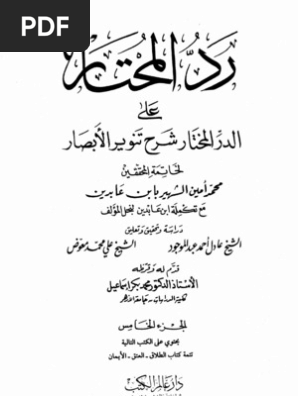 PDF
رد المحتار
على
الدر المختار شرح تنوير الأبصار
لخاتمة المحققين
محمد أمين الشهير بابن عابدين
مع تكملة ابن عابدين لنجل المؤلف
دراسة وتحقيق وتعليق
الشيخ عادل أحمد عبد الموجود الشيخ علي محمد معوض
قدم له وقرظه
الأستاذ الدكتور محمد بكر إسماعيل
كلية الدراسات - جامعة الأزهر
الجزء الخامس
يحتوي على الكتب التالية
تتمة كتاب الطلاق - العتق - الأيمان
دار عالم الكتب